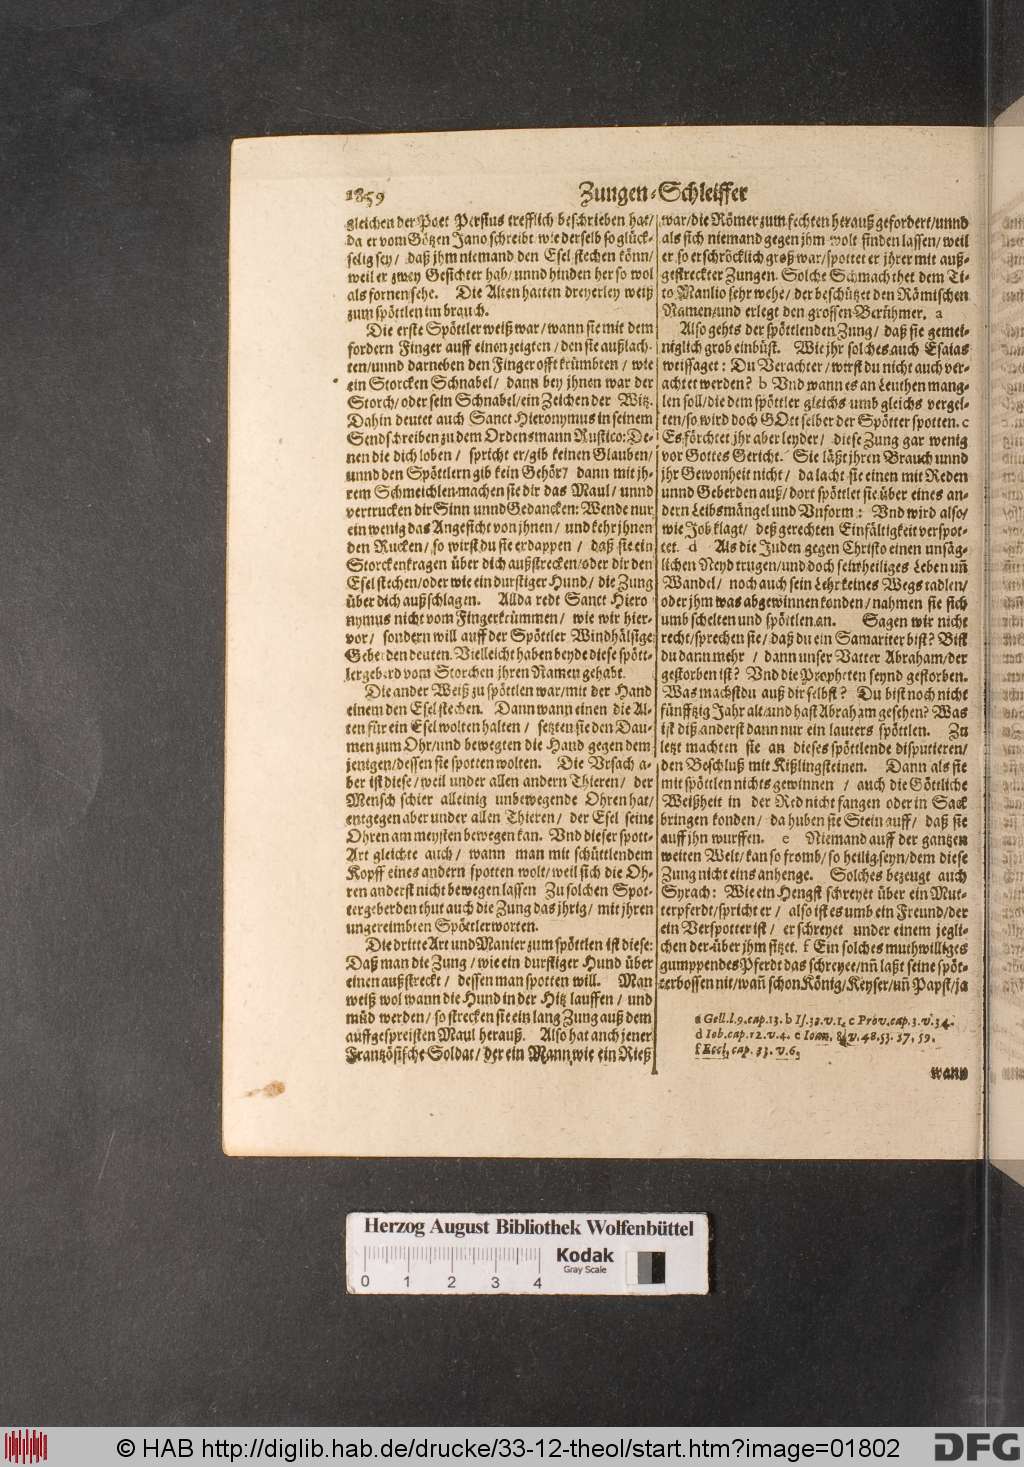 1859
Zungen-Schleiffer
gleichen der Poet Persius trefflich beschrieben hat/
da er vom Götzen Jano schreibt wie derselb so glück-
selig sey / daß jhm niemand den Esel stechen könn/
weil er zwey Gesichter hab/unnd hinden her so wol
als fornen sehe. Die Alten hatten dreyerley weiß
zum spöttlen im brauch.
Die erste Spöttlerweiß war/wann sie mit dem
fordern Finger auff einen zeigten / den sie außlach-
ten/unnd darneben den Finger offt krümbten / wie
ein Storcken Schnabel/ dann bey jhnen war der
Storch/oder sein Schnabel/ein Zeichen der Witz.
Dahin deutet auch Sanct Hieronymus in seinem
Sendschreiben zu dem Ordensmann Rustico: De-
nen die dich loben / spricht er/gib keinen Glauben/
unnd den Spöttlern gib kein Gehör/ dann mit jh-
rem Schmeichlen machen sie dir das Maul/ unnd
vertrucken dir Sinn unnd Gedancken: Wende nur
ein wenig das Angesicht von jhnen/ und kehr jhnen
den Rucken/ so wirst du sie erdappen / daß sie ein
Storckenkragen über dich außstrecken/oder dir den
Esel stechen/oder wie ein durstiger Hund/ die Zung
über dich außschlagen. Allda redt Sanct Hiero
nymus nicht vom Fingerkrümmen/ wie wir hier-
vor/ sondern will auff der Spöttler Windhälsige
Geberden deuten. Vielleicht haben beyde diese spött-
lergeberd vom Storchen jhren Namen gehabt.
Die ander Weiß zu spöttlen war/mit der Hand
einem den Esel stechen. Dann wann einen die Al-
ten für ein Esel wolten halten / setzten sie den Dau-
men zum Ohr/und bewegten die Hand gegen dem
jenigen/dessen sie spotten wolten. Die Ursach a-
ber ist diese/ weil under allen andern Thieren/ der
Mensch schier alleinig unbewegende Ohren hat/
entgegen aber under allen Thieren/ der Esel seine
Ohren am meysten bewegen kan. Und dieser spott-
Art gleichte auch/ wann man mit schüttlendem
Kopff eines andern spotten wolt/weil sich die Oh-
ren anderst nicht bewegen lassen Zu solchen Spot-
tergeberden thut auch die Zung das jhrig/ mit jhren
ungereimbten Spöttlerworten.
Die dritte Art und Manier zum spöttlen ist diese:
Daß man die Zung/ wie ein durstiger Hund über
einen außstreckt / dessen man spotten will. Man
weiß wol wann die Hund in der Hitz lauffen / und
müd werden/ so strecken sie ein lang Zung auß dem
auffgespreisten Maul herauß. Also hat auch jener
Frantzösische Soldat/ der ein Mann wie ein Rieß
war/die Römer zum fechten herauß gefordert/unnd
als sich niemand gegen jhm wolt finden lassen/ weil
er so erschröcklich groß war/spottet er jhrer mit auß-
gestreckter Zungen. Solche Schmach thet dem Ti-
to Manlio sehr wehe/ der beschützet den Römischen
Namen/und erlegt den grossen Berühmer. a
Also gehts der spöttlenden Zung/ daß sie gemei-
niglich grob einbüst. Wie jhr solches auch Esaias
weissaget: Du Verachter/ wirst du nicht auch ver-
achtet werden? b Und wann es an Leuthen mang-
len soll/die dem spöttler gleichs umb gleichs vergel-
ten/so wird doch GOtt selber der Spötter spotten. c
Es förchtet jhr aber leyder/ diese Zung gar wenig
vor Gottes Gericht. Sie läßt jhren Brauch unnd
jhr Gewonheit nicht/ da lacht sie einen mit Reden
unnd Geberden auß/dort spöttlet sie über eines an-
dern Leibsmängel und Unform: Und wird also/
wie Job klagt/ deß gerechten Einfältigkeit verspot-
tet. d Als die Juden gegen Christo einen unsäg-
lichen Neyd trugen/und doch sein heiliges Leben uñ
Wandel/ noch auch sein Lehr keines Wegs tadlen/
oder jhm was abgewinnen konden/nahmen sie sich
umb schelten und spöttlen an. Sagen wir nicht
recht/sprechen sie/ daß du ein Samariter bist? Bist
du dann mehr / dann unser Vatter Abraham/der
gestorben ist? Und die Propheten seynd gestorben.
Was machst du auß dir selbst? Du bist noch nicht
fünfftzig Jahr alt/und hast Abraham gesehen? Was
ist diß anderst dann nur ein lauters spöttlen. Zu
letzt machten sie an dieses spöttlende disputieren/
den Beschluß mit Kißlingsteinen. Dann als sie
mit spöttlen nichts gewinnen / auch die Göttliche
Weißheit in der Red nicht fangen oder in Sack
bringen konden/ da huben sie Stein auff/ daß sie
auff jhn wurffen. e Niemand auff der gantzen
weiten Welt/kan so fromb/so heilig seyn/dem diese
Zung nicht eins anhenge. Solches bezeugt auch
Syrach: Wie ein Hengst schreyet über ein Mut-
terpferdt/spricht er/ also ist es umb ein Freund/der
ein Verspotter ist/ er schreyet under einem jegli-
chen der über jhm sitzet. f Ein solches muthwilliges
gumppendes Pferdt das schreyee/uñ laßt seine spöt-
terbossen nit/wañ schon König/Keyser/uñ Papst/ja
a Gell.l.9.cap.13. b Is.33.v.1. c Prov.cap.3.v.34.
d Iob.cap.12.v.4. e Ioan. 8. v.48.53.57.59.
f Eccl. cap. 33. v.6.
wann
Herzog August Bibliothek Wolfenbüttel
0 1 2 3 4
Kodak
Gray Scale
© HAB http://diglib.hab.de/drucke/33-12-theol/start.htm?image=01802
DFG